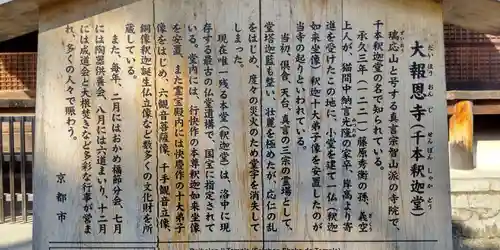 大報恩寺(千本釈迦堂)
だい ほう おん じ せん ぼん しゃ か どう
瑞応山と号する真言宗智山派の寺院で、
千本釈迦堂の名で知られている。
承久三年(一二二一)、藤原秀衡の孫、義空
上人が、猫間中納言光隆の家卒、岸高より寄
進を受けたこの地に、小堂を建て一仏(釈迦
如来坐像)、釈迦十大弟子像を安置したのが
当寺の起りといわれている。
当初、倶舎、天台、真言の三宗の霊場として、
堂塔迦藍も整い、壮麗を極めたが、応仁の乱
をはじめ、度々の災火のため堂宇を消失して
しまった。
現在唯一残る本堂(釈迦堂)は、洛中に現
存する最古の仏堂遺構で、国宝に指定されて
いる。堂内には、行快作の本尊釈迦如来坐像
を安置、また霊宝殿内には快慶作の十大弟子
像をはじめ、六観音菩薩像、千手観音立像、
銅像釈迦誕生仏立像など数多くの文化財を所
蔵している。
また、毎年、二月にはおかめ福節分会、七月
には陶器供養会、八月には六道まいり、十二月
には成道会と大根焚きなど多彩な行事が営ま
れ、多くの人々で賑わう。
京都市